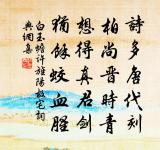 詩多唐代刻
柏尚晉時青
想得真君劍
猶餘蛟血腥
白玉蟾許旌陽故宅詞
典網集